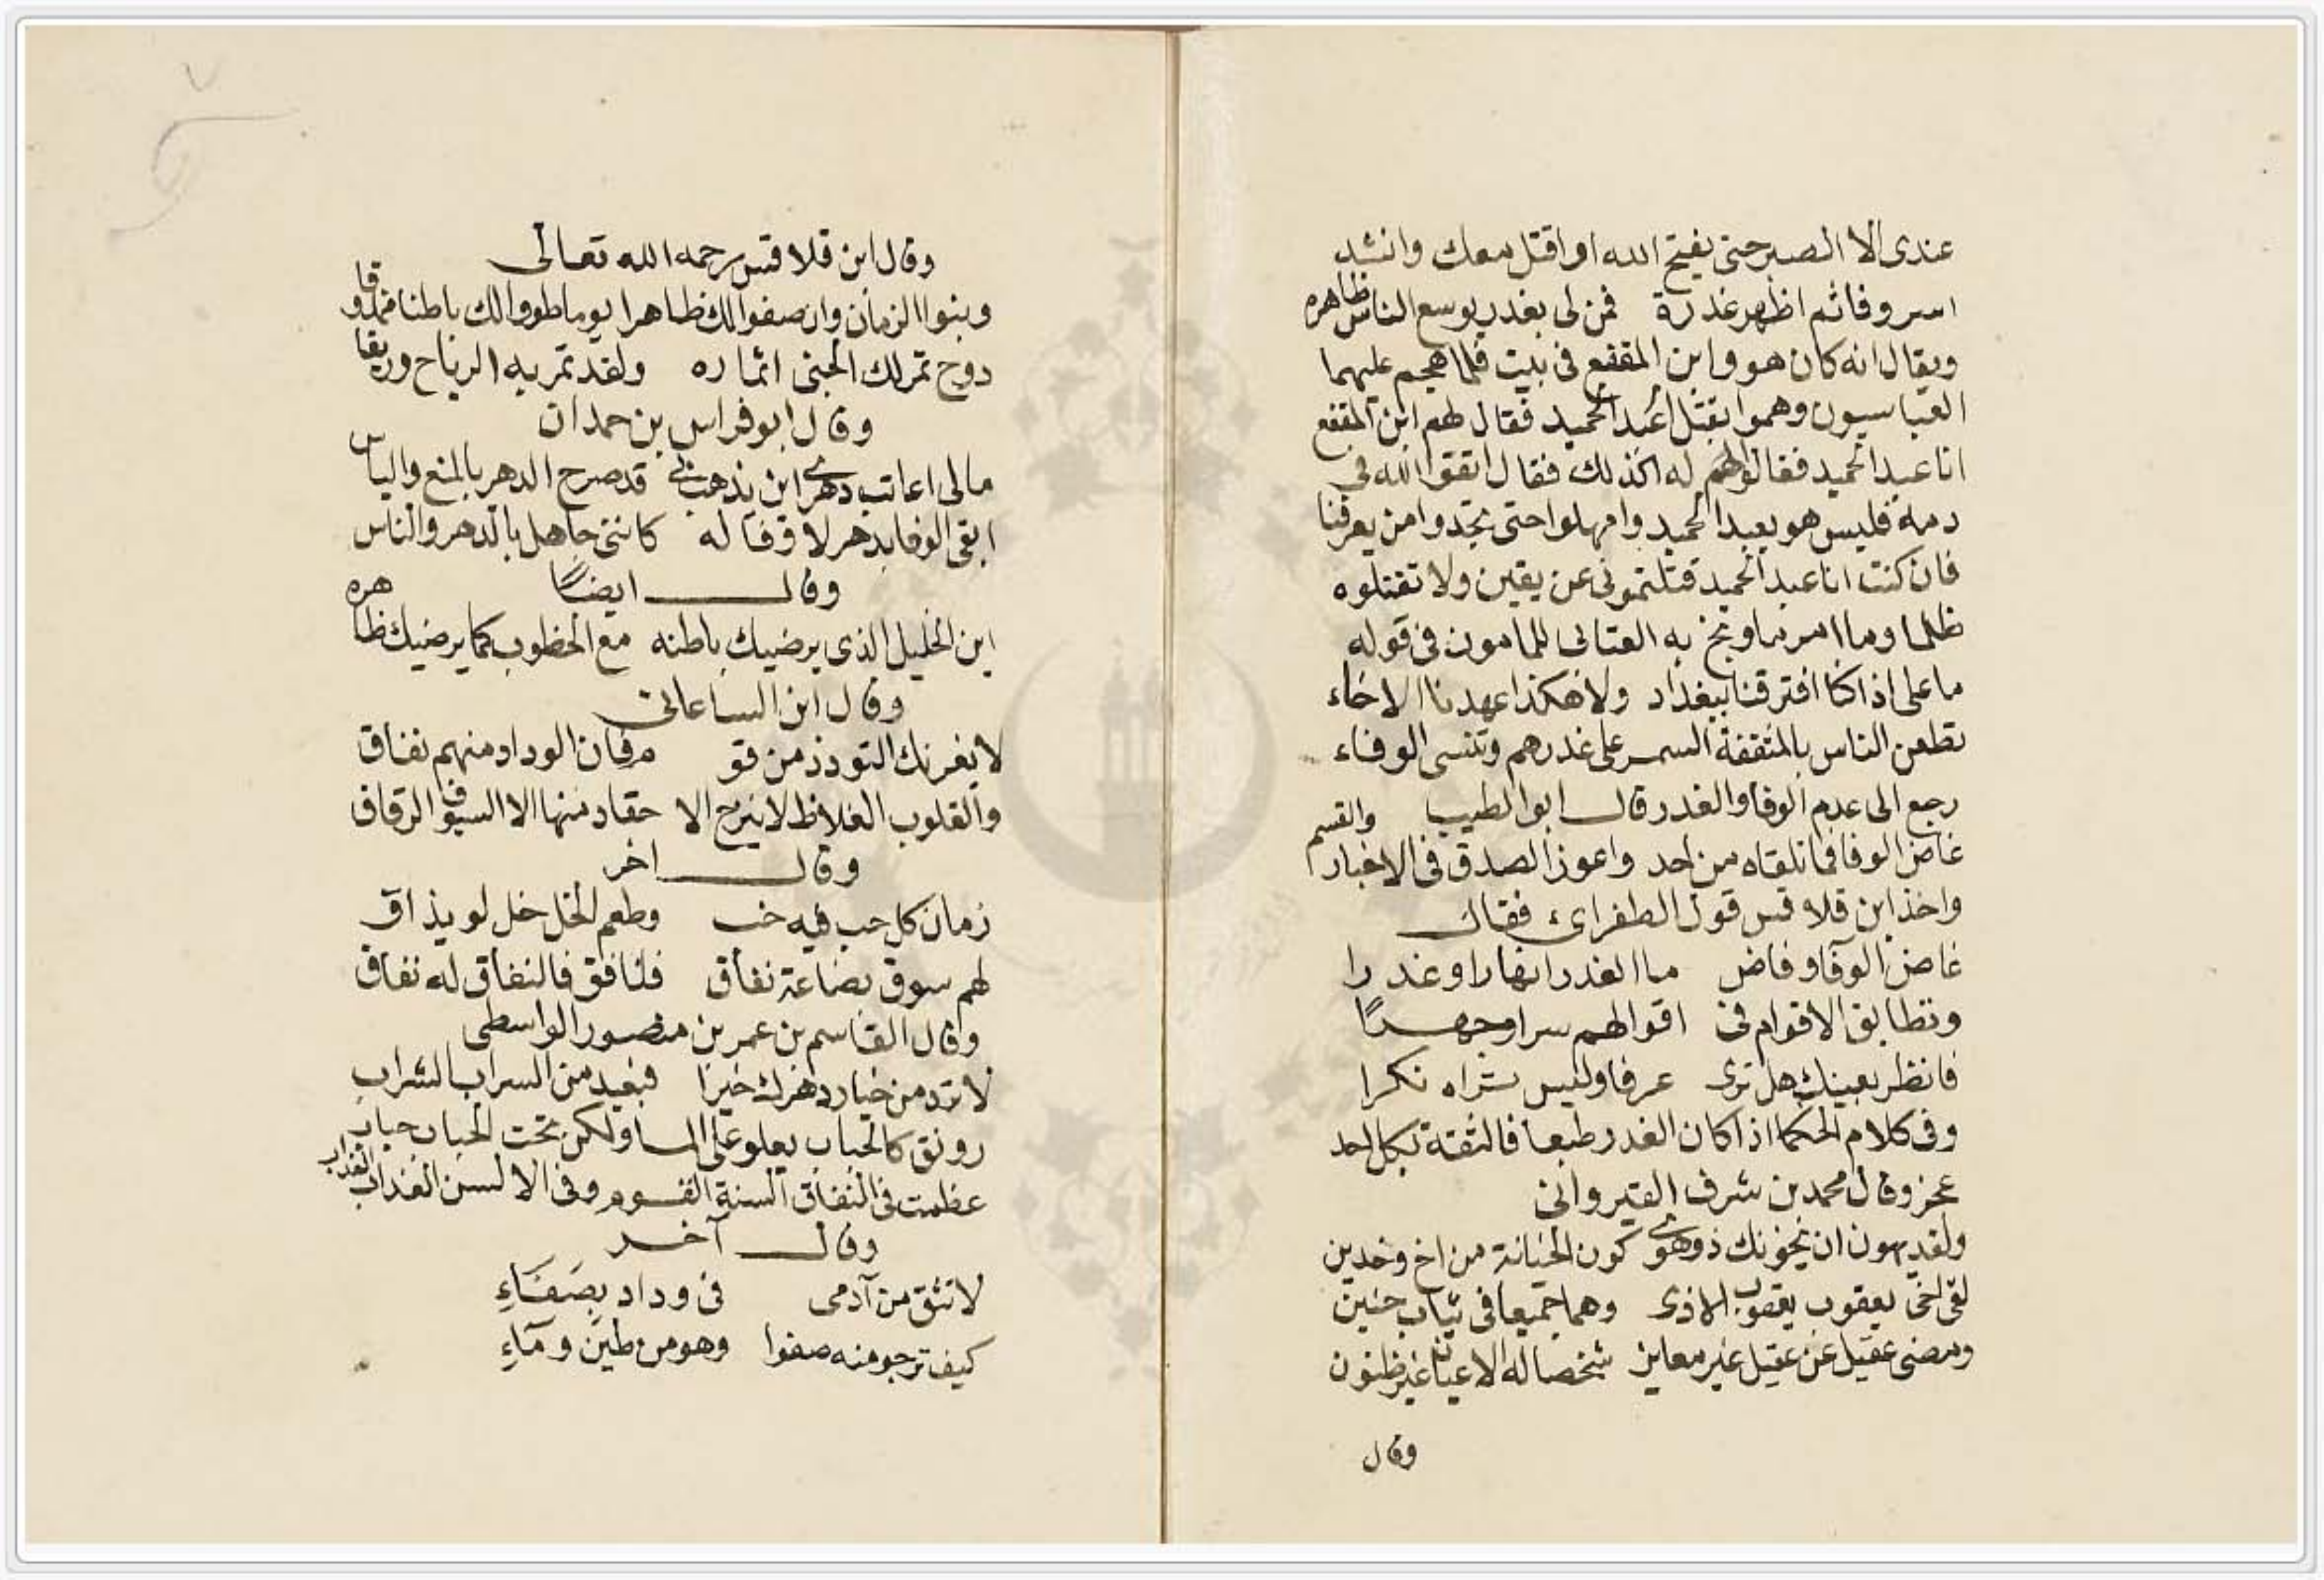 عندى الا الصبر حتى يفتح الله او اقتل معك وانشد
اسر وفا ثم اظهر غدرة فمن لى بغدر يوسع الناس ظاهره
ويقال انه كان هو وابن المقفع فى بيت فلما هجم عليهما
العباسيون وهموا بقتل عبد الحميد فقال لهم ابن المقفع
انا عبد الحميد فقالوا لهم له اكذلك فقال اتقوا الله فى
دمه فليس هو بعبد الحميد وامهلوا حتى تجدوا من يعرفنا
فان كنت انا عبد الحميد قتلتمونى عن يقين ولا تقتلوه
ظلما وما اسر ما وبخ به العتابى للمامون فى قوله
ما على اذا كنا افترقنا ببغداد ولا هكذا عهدنا الاخاء
تطعن الناس بالمثقفة السمر على غدرهم وتنسى الوفاء
رجع الى عدم الوفا والغدر قال ابو الطيب
غاض الوفا فما تلقاه من احد واعوز الصدق فى الاخبار والقسم
واخذ ابن قلاقس قول الطغرائ فقال
غاض الوفآ وفاض ما الغدر انهارا وغدرا
وتطابق الاقوام فى اقوالهم سرا وجهرًا
فانظر بعينك هل ترى عرفا وليس تراه نكرا
وفى كلام الحكما اذا كان الغدر طبعا فالثقة بكل احد
عجز وقال محمد بن شرف القيروانى
ولقد يهون ان يخونك ذو هوى كون الخيانة من اخ وخدين
لقى اخى يعقوب يعقوب الاذى وهما جميعا فى ثياب جنين
ومضى عقيل عن عقيل غير معايز شخصا له الاعيان غير ظنون
وقال
وقال ابن قلاقس رحمه الله تعالى
وبنوا الزمان وان صفوا لك ظاهرا يوما طووا لك باطنا ممذوقا
دوح تمر لك الجنى اثماره ولقد تمر به الرياح وريقا
وقال ابو فراس بن حمدان
مالى اعاتب دهرى اين يذهب بى قد صرح الدهر بالمنع والياس
ابقى الوفا بدهر لا وفا له كاننى جاهل بالدهر والناس
وقال ايضًا
اين الخليل الذى يرضيك باطنه مع الخطوب كما يرضيك ظاهره
وقال ابن الساعاتى
لا يغرنك التودد من قو م فان الوداد منهم نفاق
والقلوب الغلاظ لا ينزح الا حقاد منها الا السيوف الرقاق
وقال اخر
زمان كل حب فيه خب وطعم الخل خل لو يذاق
لهم سوق بضاعته نفاق فنافق فالنفاق له نفاق
وقال القاسم بن عمر بن منصور الواسطى
لا ترد من خيار دهرك خيرا فبعيد من السراب الشراب
رونق كالحباب يعلو على الما ولكن تحت الحباب حباب
عظمت فى النفاق السنة القوم وفى الالسن العذاب العذاب
وقال آخر
لا تثق من آدمى فى وداد بصَفَاءِ
كيف ترجو منه صفوا وهو من طين ومآءِ